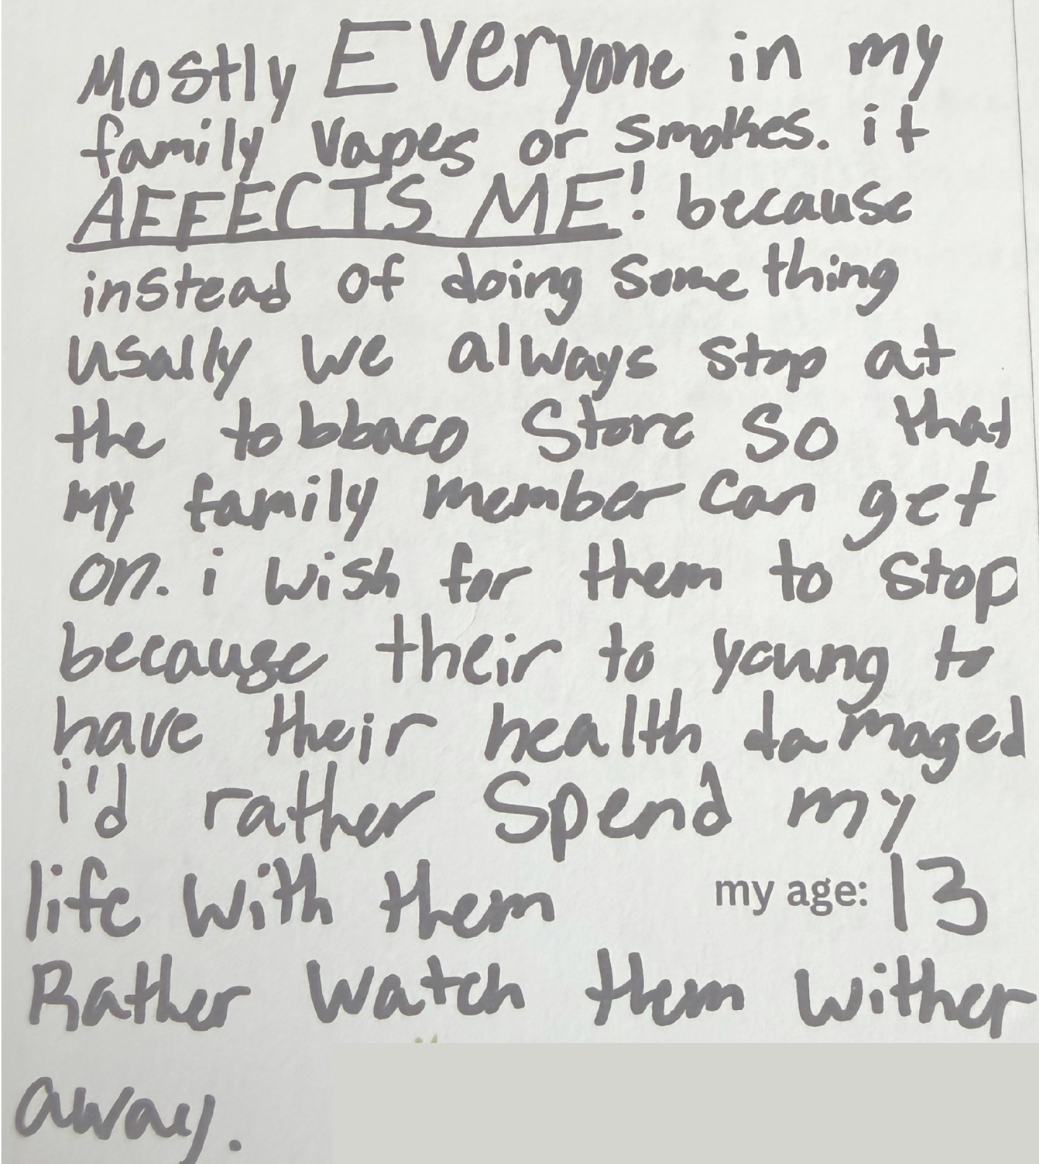 Mostly Everyone in my
family vapes or smokes. it
AFFECTS ME! because
instead of doing something
usally we always stop at
the tobbaco Store so that
my family member can get
on. i wish for them to stop
because their to young to
have their health damaged
i'd rather spend my
life with them my age: 13
Rather watch them wither
away.